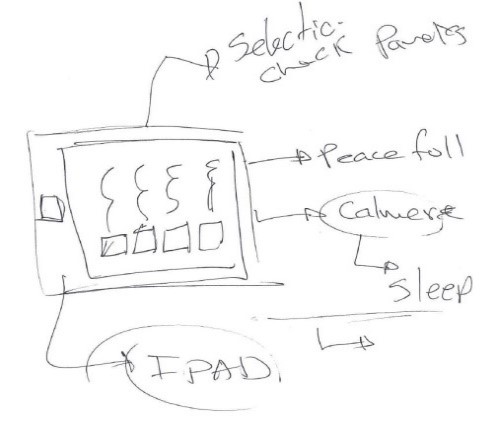 Selectic-
check Panels
Peace full
Calmer
Sleep
IPAD